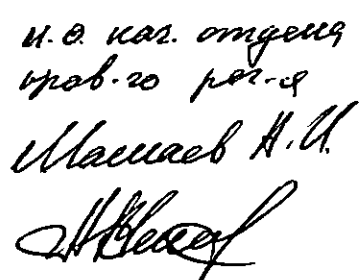 и.о. нач. отдела
прав-го рег-я
Машаев Н.И.